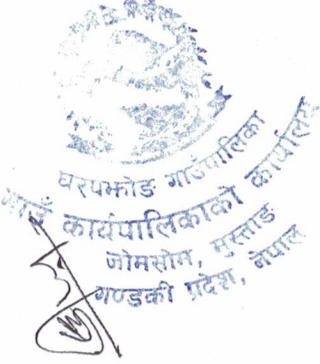 घरपझोङ गाउँपालिका
गाउँ कार्यपालिकाको कार्यालय
जोमसोम, मुस्ताङ
गण्डकी प्रदेश, नेपाल